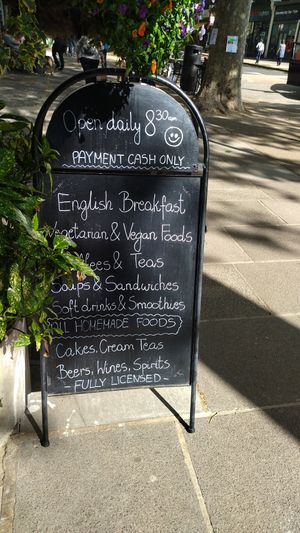 Open daily 8.30am
PAYMENT CASH ONLY
English Breakfast
Vegetarian & Vegan Foods
& Teas
Soups & Sandwiches
Soft drinks & Smoothies
ALL HOMEMADE FOODS
Cakes, Cream Teas
Beers, Wines, Spirits
- FULLY LICENSED -